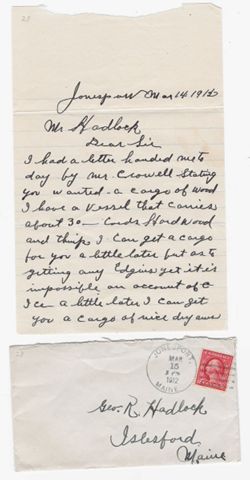 Jonesport Mar 14 1912
Mr Hadlock
Dear Sir
I had a letter handed me to
day by Mr. Crowell Stating
you wanted a cargo of wood
I have a Vessel that carries
about 30 Cords Hard wood
and think I can get a cargo
for you a little later but as to
getting any Edgins yet it is
impossible on account of
Ice a little later I can get
you a cargo of nice dry
JONESPORT
MAR
15
1912
MAINE
Geo. R. Hadlock
Islesford
Maine